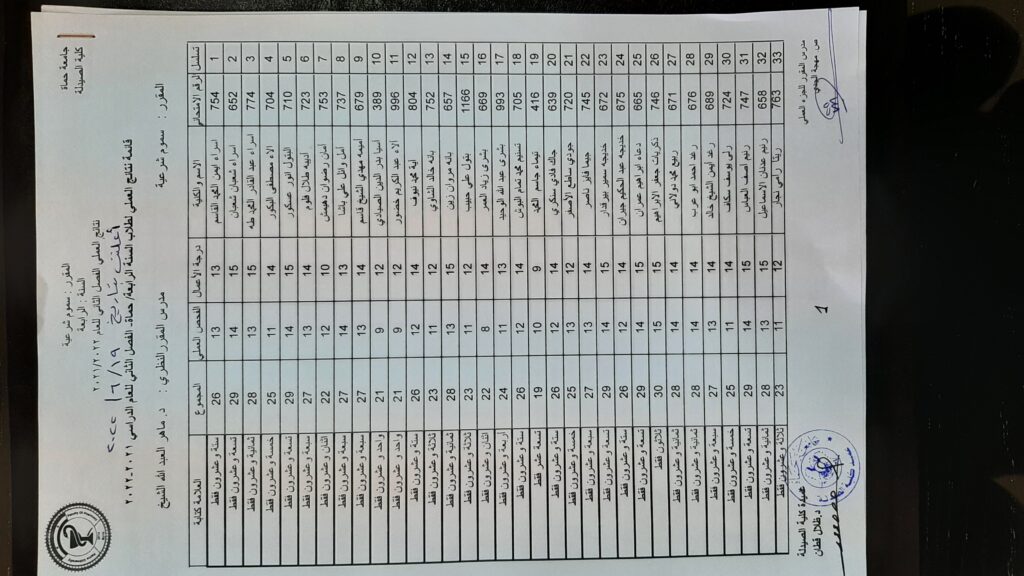 جامعة حماة
كلية الصيدلة
المقرر : سموم شرعية
السنة : الرابعة
نتائج العملي الفصل الثاني للعام ٢٠٢١/٢٠٢٢
أعلنت بتاريخ ١٩/٦/٢٠٢٢
قائمة نتائج العملي لطلاب السنة الرابعة/ حماة- الفصل الثاني للعام الدراسي ٢٠٢١-٢٠٢٢
المقرر : سموم شرعية مدرس المقرر النظري : د. ماهر العبد الله الشيخ
تسلسل الرقم الامتحاني الاسم والكنية درجة الأعمال الفحص العملي المجموع العلامة كتابة
1 754 اسراء انيس المحمد القاسم 13 13 26 ستة و عشرون فقط
2 652 اسراء شعبان شعبان 15 14 29 تسعة و عشرون فقط
3 774 اسراء عبد القادر المحمد طه 15 13 28 ثمانية و عشرون فقط
4 704 الاء مصطفى البكور 14 11 25 خمسة و عشرون فقط
5 710 البتول انور عسكور 15 14 29 تسعة و عشرون فقط
6 723 أليفه طلال فلوم 14 13 27 سبعة و عشرون فقط
7 753 أمان رضوان دهيمش 10 12 22 اثنان و عشرون فقط
8 737 أمل وائل علي باشا 13 14 27 سبعة و عشرون فقط
9 679 أميمه مهدي الشيخ قاسم 14 13 27 سبعة و عشرون فقط
10 389 آسيا بدر الدين الصيادي 12 9 21 واحد و عشرون فقط
11 996 آلاء عبد الكريم خضور 12 9 21 واحد و عشرون فقط
12 804 آية محمد نيوف 14 12 26 ستة و عشرون فقط
13 752 بانه خالد الشاوي 12 11 23 ثلاثة و عشرون فقط
14 657 بانه مروان زين 15 13 28 ثمانية و عشرون فقط
15 1166 بتول علي حبيب 12 11 23 ثلاثة و عشرون فقط
16 669 بشرى زياد العمر 14 8 22 اثنان و عشرون فقط
17 993 بشرى عبد الله الوحيد 13 11 24 أربعة و عشرون فقط
18 705 تسنيم محمد تمام البوش 14 12 26 ستة و عشرون فقط
19 416 تيماء جاسم المحمد 9 10 19 تسعة عشر فقط
20 639 جاك فادي سنكري 14 12 26 ستة و عشرون فقط
21 720 جودي ساطع الأصفر 12 13 25 خمسة و عشرون فقط
22 745 جيما فايز ناصر 14 13 27 سبعة و عشرون فقط
23 672 خديجه سمير بيرقدار 15 14 29 تسعة و عشرون فقط
24 675 خديجه عبد الحكيم جيران 14 12 26 ستة و عشرون فقط
25 665 دعاء ابراهيم عمران 15 14 29 تسعة و عشرون فقط
26 746 ذكريات جعفر الابراهيم 15 15 30 ثلاثون فقط
27 671 ربيع محمد دولاتي 14 14 28 ثمانية و عشرون فقط
28 676 رعد احمد ابو عرب 14 14 28 ثمانية و عشرون فقط
29 689 رعد انيس الشيخ خالد 14 13 27 سبعة و عشرون فقط
30 724 رلى يوسف سكاف 14 11 25 خمسة و عشرون فقط
31 747 رنيم آصف العباس 15 14 29 تسعة و عشرون فقط
32 658 رنيم عدنان الاسماعيل 15 13 28 ثمانية و عشرون فقط
33 763 ريتا رامي نجار 12 11 23 ثلاثة و عشرون فقط
مدرس المقرر للجزء العملي
عمادة كلية الصيدلة
د.طلال قطان
1